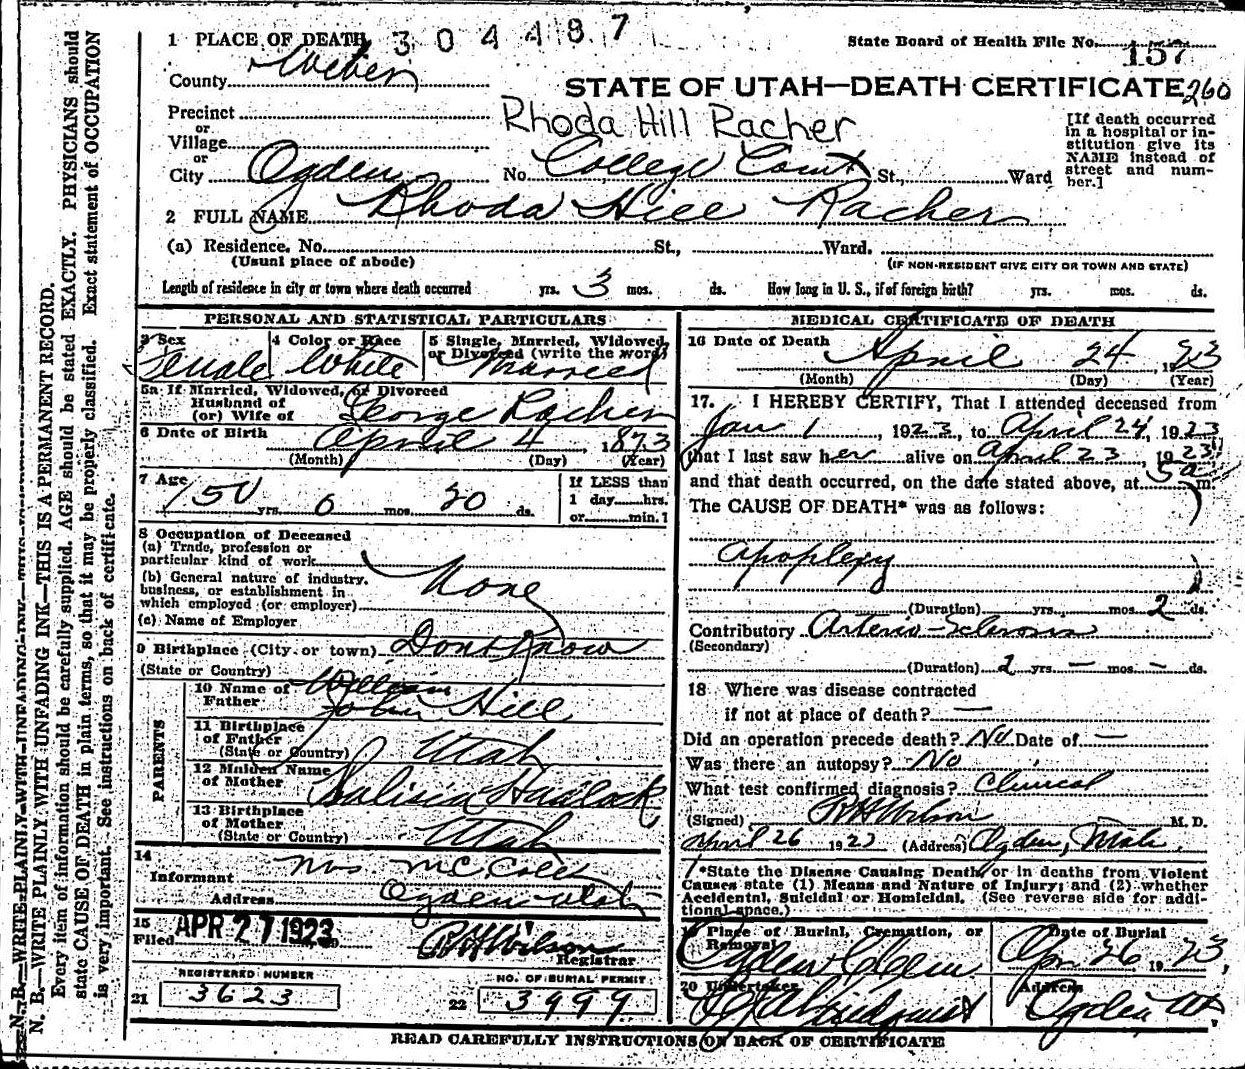 1 PLACE OF DEATH 304487
State Board of Health File No. 157
County Weber
STATE OF UTAH—DEATH CERTIFICATE 260
Precinct
or
Village
or
City Ogden No. College Court St., Ward
Rhoda Hill Racher
[If death occurred
in a hospital or in-
stitution give its
NAME instead of
street and num-
ber.]
2 FULL NAME Rhoda Hill Racher
(a) Residence. No. St., Ward.
(Usual place of abode) (IF NON-RESIDENT GIVE CITY OR TOWN AND STATE)
Length of residence in city or town where death occurred yrs. 3 mos. ds. How long in U. S., if of foreign birth? yrs. mos. ds.
PERSONAL AND STATISTICAL PARTICULARS
3 Sex Female
4 Color or Race White
5 Single, Married, Widowed,
or Divorced (write the word) Married
5a If Married, Widowed, or Divorced
Husband of
(or) Wife of George Racher
6 Date of Birth April 4, 1873
(Month) (Day) (Year)
7 Age 50 yrs. 0 mos. 20 ds.
If LESS than
1 day hrs.
or min.]
8 Occupation of Deceased
(a) Trade, profession or
particular kind of work None
(b) General nature of industry,
business, or establishment in
which employed (or employer)
(c) Name of Employer
9 Birthplace (City or town) Dont Know
(State or Country)
PARENTS
10 Name of
Father William
John Hill
11 Birthplace
of Father Utah
(State or Country)
12 Maiden Name
of Mother
13 Birthplace
of Mother Utah
(State or Country)
14
Informant Mrs. McCall
Address Ogden Utah
15
Filed APR 27 1923 R H Wilson
Registrar
REGISTERED NUMBER
21 3623
NO. OF BURIAL PERMIT
22 3999
MEDICAL CERTIFICATE OF DEATH
16 Date of Death April 24, 1923
(Month) (Day) (Year)
17. I HEREBY CERTIFY, That I attended deceased from
Jan 1, 1923, to April 24, 1923
that I last saw her alive on April 23, 1923
and that death occurred, on the date stated above, at 5 a m.
The CAUSE OF DEATH* was as follows:
Apoplexy
(Duration) yrs. mos. 2 ds.
Contributory Arterio-Sclerosis
(Secondary)
(Duration) 2 yrs. — mos. — ds.
18 Where was disease contracted
if not at place of death? —
Did an operation precede death? No Date of —
Was there an autopsy? No
What test confirmed diagnosis? Clinical
(Signed) R H Wilson M. D.
April 26 1923 (Address) Ogden, Utah.
*State the Disease Causing Death, or in deaths from Violent
Causes state (1) Means and Nature of Injury; and (2) whether
Accidental, Suicidal or Homicidal. (See reverse side for addi-
tional space.)
19 Place of Burial, Cremation, or
Removal Ogden Cem
Date of Burial
Apr. 26, 1923,
20 Undertaker
Address
Ogden Ut.
READ CAREFULLY INSTRUCTIONS ON BACK OF CERTIFICATE
N. B.—WRITE PLAINLY WITH UNFADING INK—THIS IS A PERMANENT RECORD.
Every item of information should be carefully supplied. AGE should be stated EXACTLY. PHYSICIANS should
state CAUSE OF DEATH in plain terms, so that it may be properly classified. Exact statement of OCCUPATION
is very important. See instructions on back of certificate.